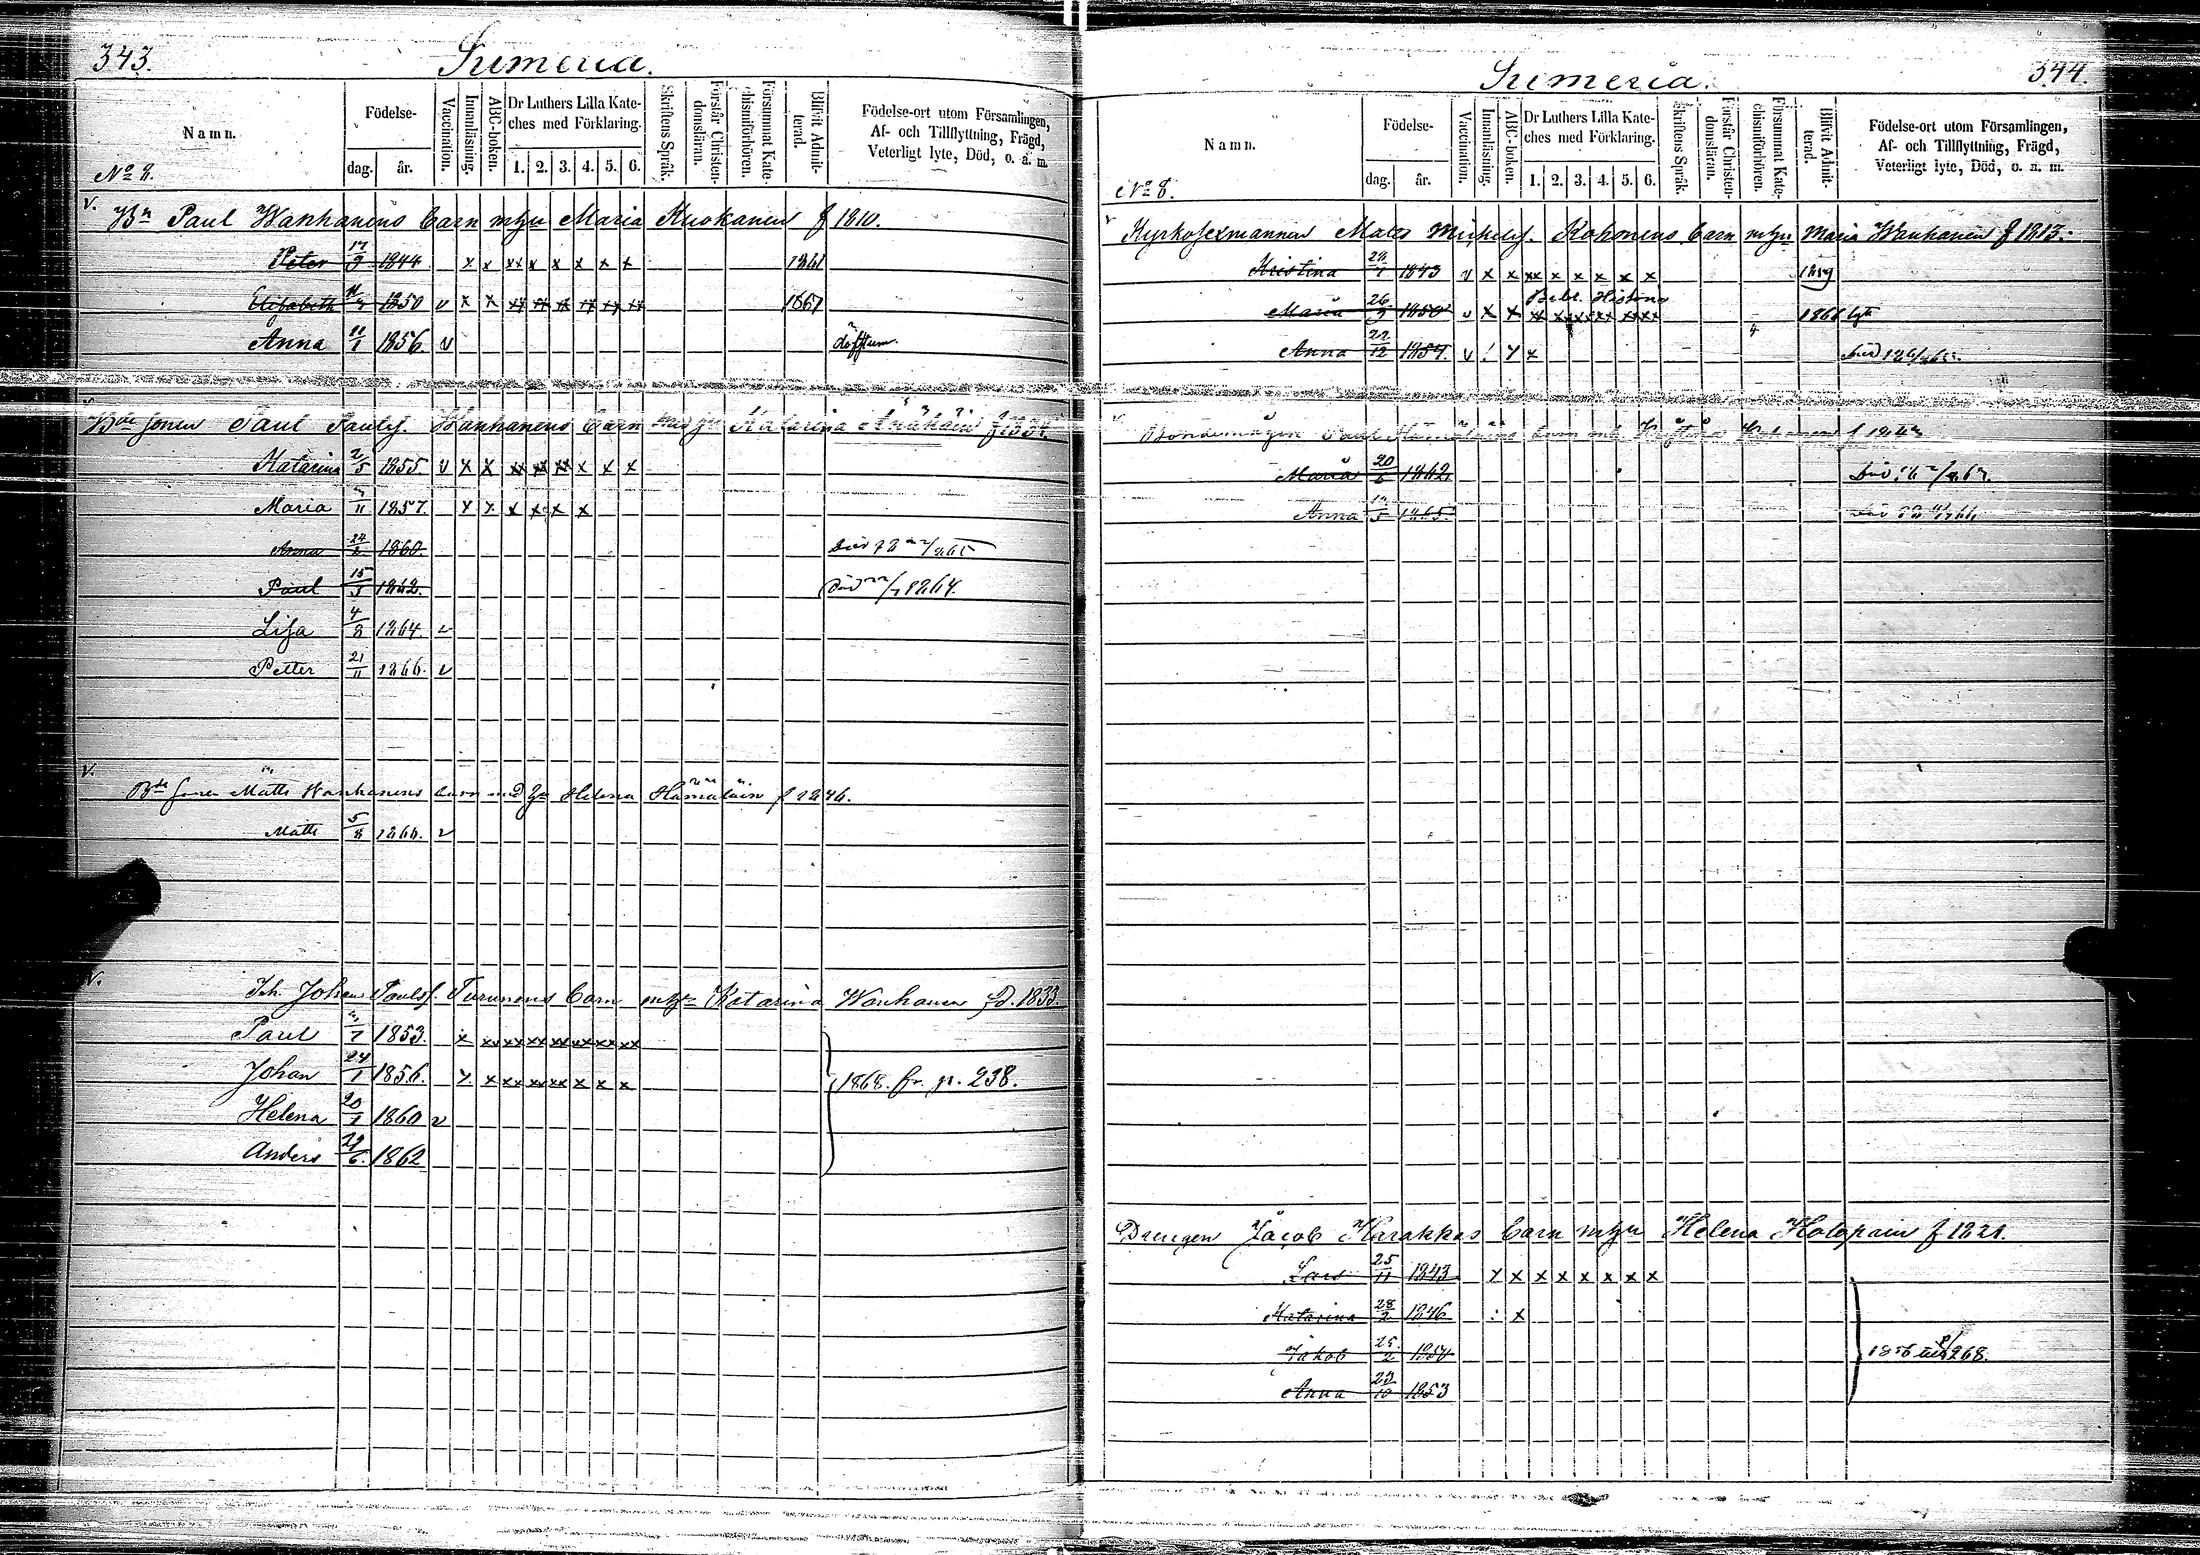 343.
Sumeria.
Namn.
Födelse-
dag.
år.
Vaccination.
Innanläsning.
ABC-boken.
Dr Luthers Lilla Kate-
ches med Förklaring.
1. 2. 3. 4. 5. 6.
Skriftens Språk.
Förstår Christen-
domsläran.
Försummat Kate-
chismiförhören.
Blifvit Admit-
terad.
Födelse-ort utom Församlingen,
Af- och Tillflyttning, Frägd,
Veterligt lyte, Död, o. a. m.
No 8.
Bn Paul Wanhanens barn m hu Maria Kuokanen f 1810.
Peter 17/9 1844 x x xx x x x x x 1861
Elisabeth 1850 v x x xx xx xx xx xx xx 1867
Anna 11/1 1856. v döfstum.
Bde sonen Paul Paulss. Wanhanens barn med hu Katarina f 1834.
Katarina 2/5 1855. v x x xx xx xx x x x
Maria 1857. x x x x x x
Anna 24/2 1860. Död
Paul 15/3 1862. Död 1864.
Lisa 4/8 1864. v
Petter 21/11 1866. v
Bde sonen Matts Wanhanens barn med hu Helena Hämäläin f 1846.
Matts 5/8 1866. v
Inh. Johan Paulss. Turunens barn m hu Katarina Wanhanen fd. 1833.
Paul 1853. x xx xx xx xx xx xx xx
Johan 24/1 1856. x x xx xx xx x x x 1868. fr. p. 238.
Helena 20/1 1860 v
Anders 29/6. 1862
344.
Sumeria.
Namn.
Födelse-
dag.
år.
Vaccination.
Innanläsning.
ABC-boken.
Dr Luthers Lilla Kate-
ches med Förklaring.
1. 2. 3. 4. 5. 6.
Skriftens Språk.
Förstår Christen-
domsläran.
Försummat Kate-
chismiförhören.
Blifvit Admit-
terad.
Födelse-ort utom Församlingen,
Af- och Tillflyttning, Frägd,
Veterligt lyte, Död, o. a. m.
No 8.
Kyrkosexmannen Mats Michelss. Kohonens barn m hu Maria Wanhanen f 1813.
Kristina 1843 v x x xx x x x x x
Bibl. Historia
Maria 26/9 1850 v x x xx xx xx xx xx xx 1868
Anna 22/12 1857. v ! x x 4 Död
Bondemågen Paul Hämäläins barn med
Maria 20/6 1862. Död
Anna 1865. Död
Drengen Jacob Karakkas barn m hu Helena Holopain f 1821.
Lars 25/11 1843 x x x x x x x x
Katarina 28/2 1846 : x
Jakob 25/2 1850
Anna 23/10 1853
268.